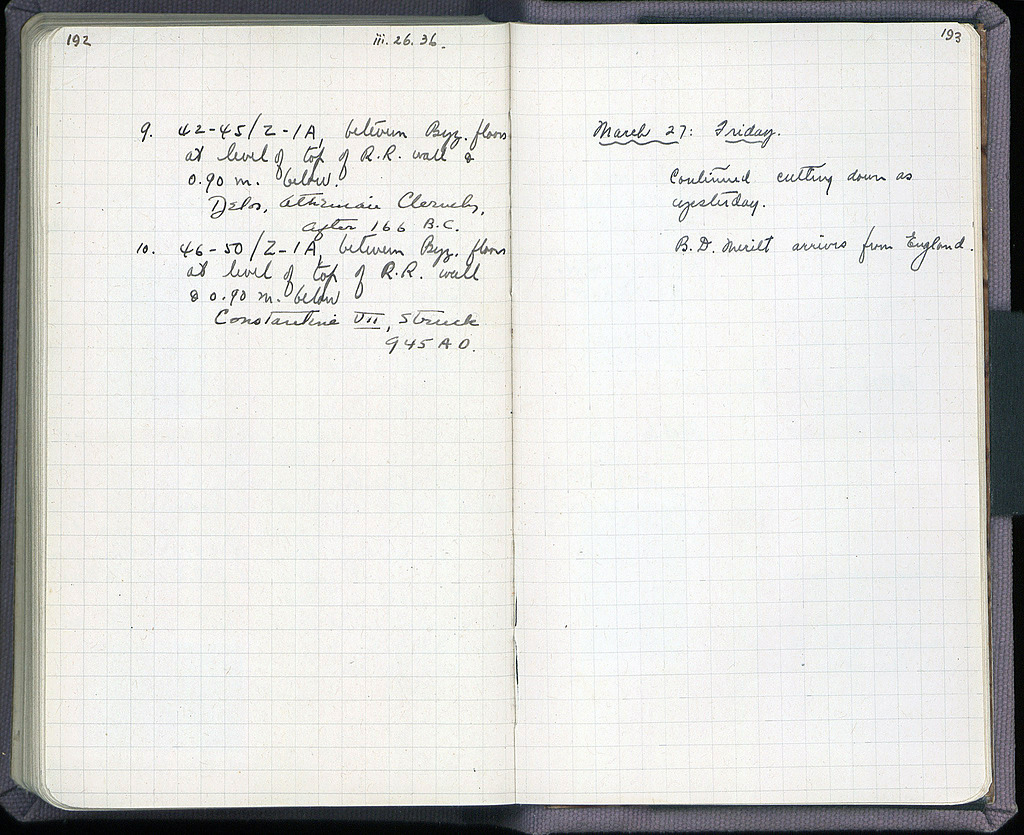 192
iii. 26. 36.
9. 42-45/Z-1A, between Byz. floors
at level of top of R.R. wall &
0.90 m. below.
Delos, Athenian Cleruchy,
after 166 B.C.
10. 46-50/Z-1A, between Byz. floors
at level of top of R.R. wall
& 0.90 m. below
Constantine VII, struck
945 A D.
193
March 27: Friday.
Continued cutting down as
yesterday.
B. D. Meritt arrives from England.